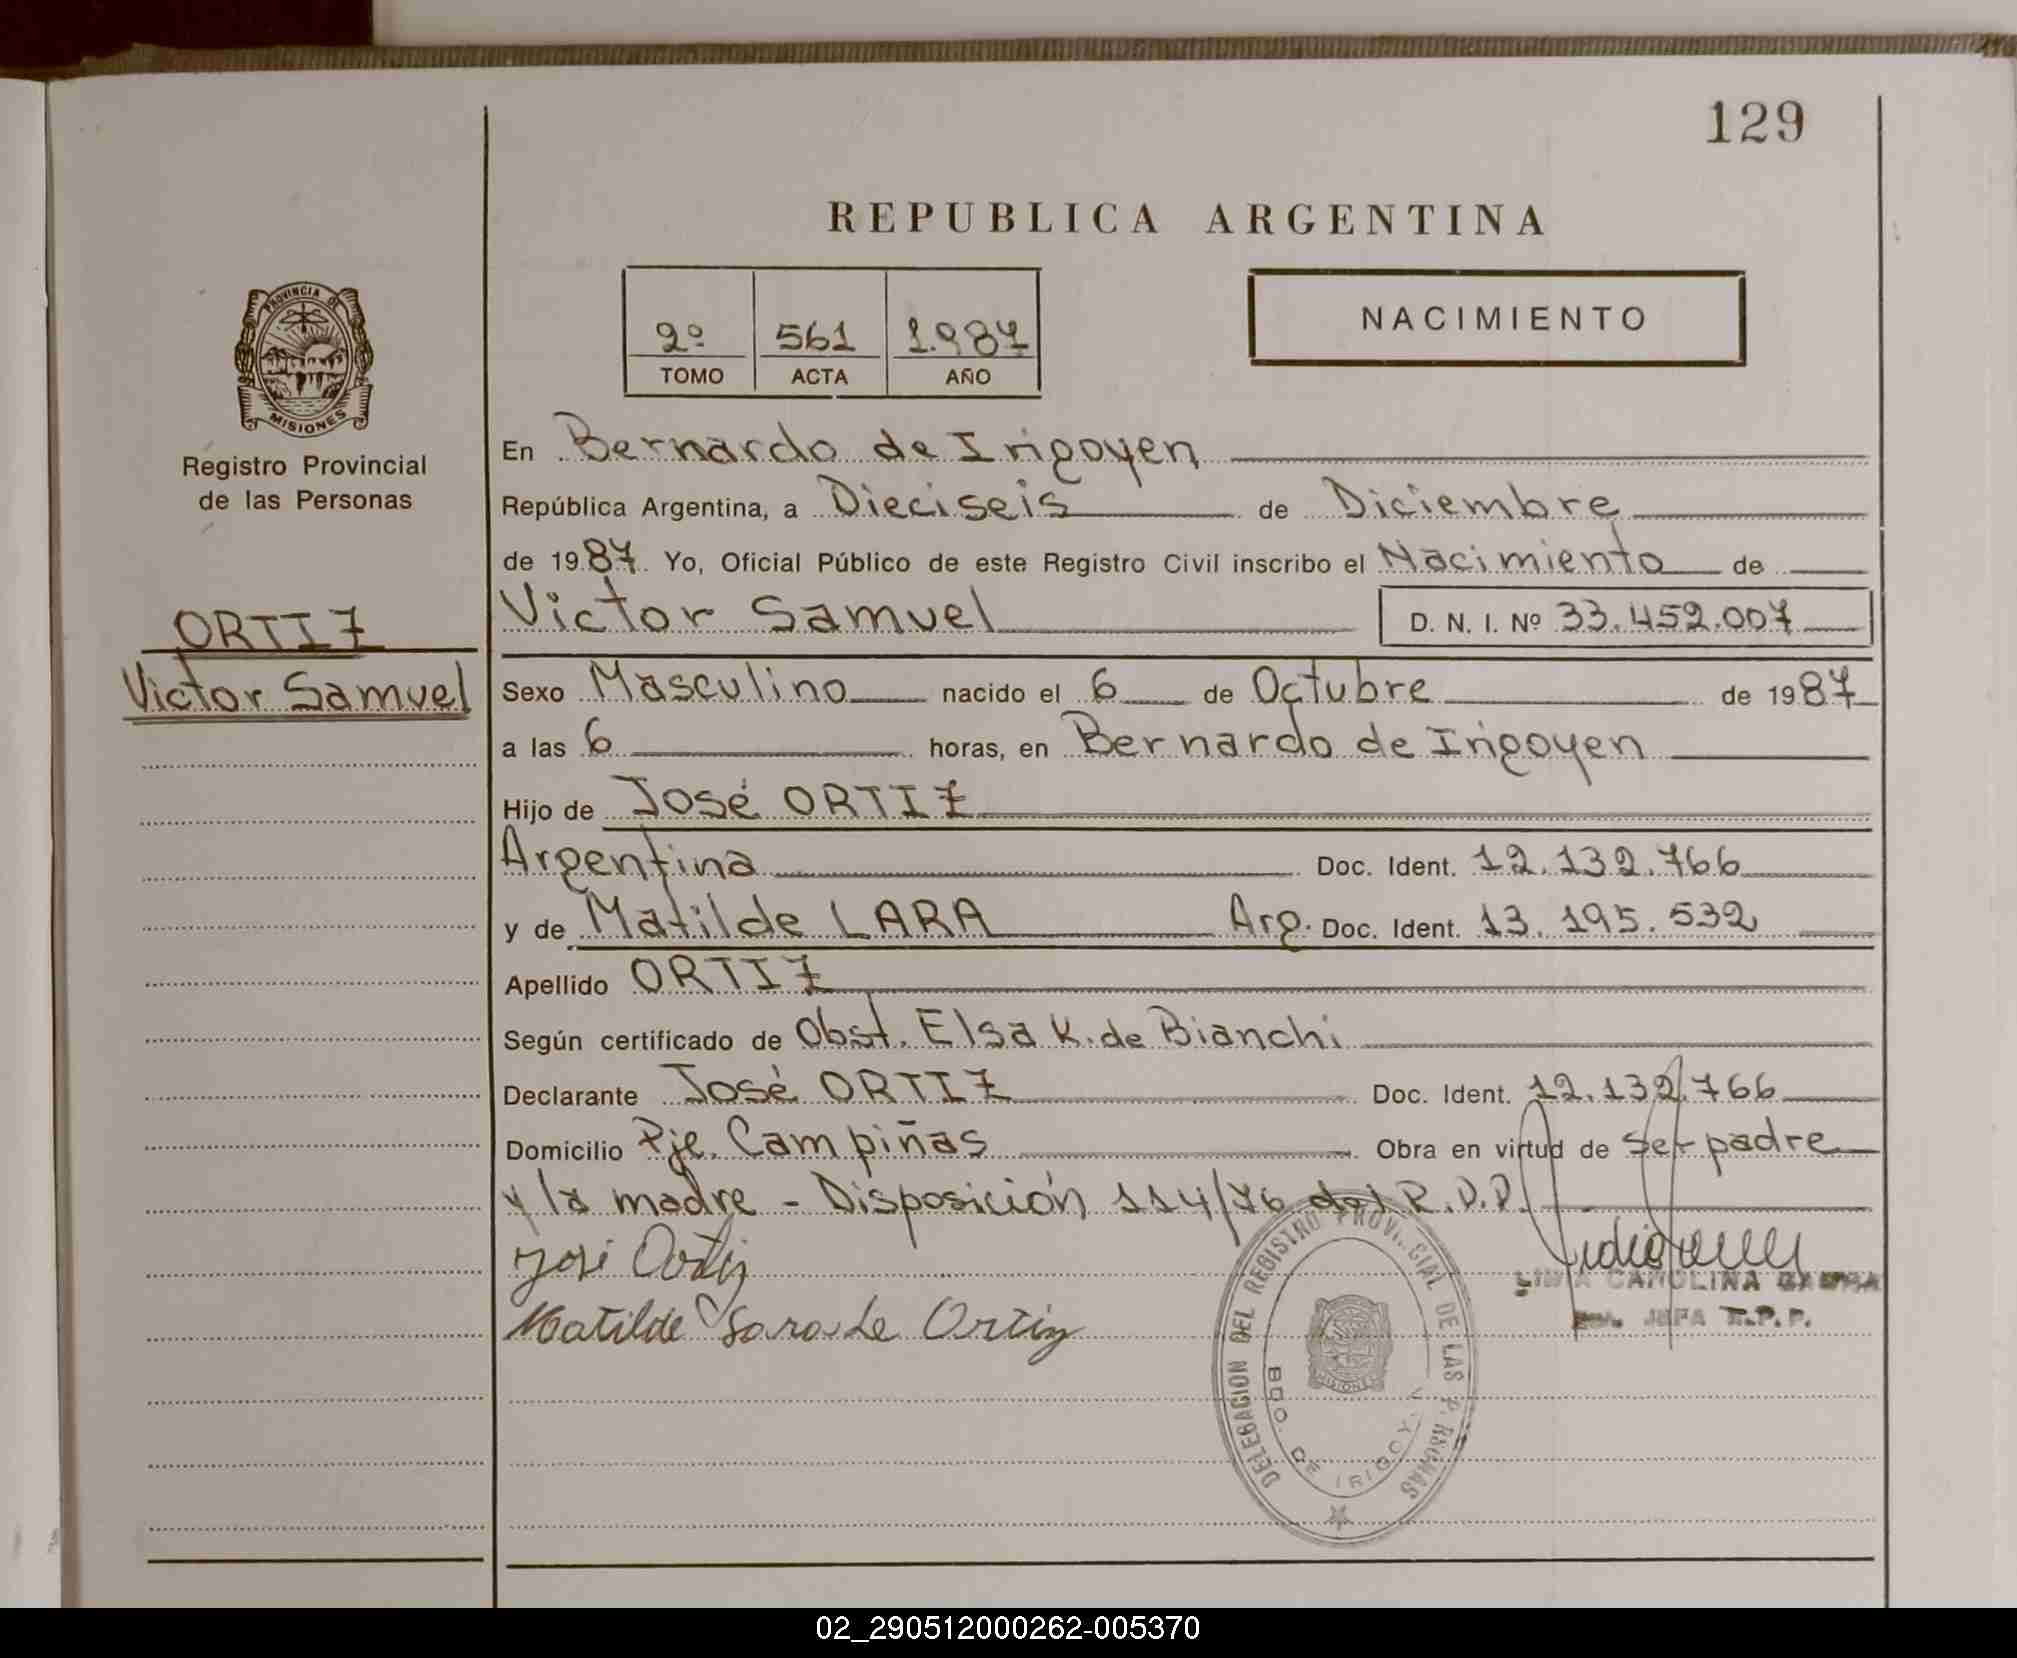 129
REPUBLICA ARGENTINA
2º 561 1.987
TOMO ACTA AÑO
NACIMIENTO
PROVINCIA DE
MISIONES
Registro Provincial
de las Personas
ORTIZ
Victor Samuel
En Bernardo de Irigoyen
República Argentina, a Dieciseis de Diciembre
de 1987. Yo, Oficial Público de este Registro Civil inscribo el Nacimiento de
Victor Samuel D. N. I. Nº 33.452.007
Sexo Masculino nacido el 6 de Octubre de 1987
a las 6 horas, en Bernardo de Irigoyen
Hijo de José ORTIZ
Argentina Doc. Ident. 12.132.766
y de Matilde LARA Arg. Doc. Ident. 13.195.532
Apellido ORTIZ
Según certificado de Obst. Elsa K. de Bianchi
Declarante José ORTIZ Doc. Ident. 12.132.766
Domicilio Pje. Campiñas Obra en virtud de ser padre
y la madre - Disposición 114/76 del R.P.P.
José Ortiz
Matilde de Ortiz
CAROLINA
JEFA R.P.P.
DELEGACION DEL REGISTRO PROVINCIAL DE LAS PERSONAS
BDO. DE IRIGOYEN
MISIONES
02_290512000262-005370